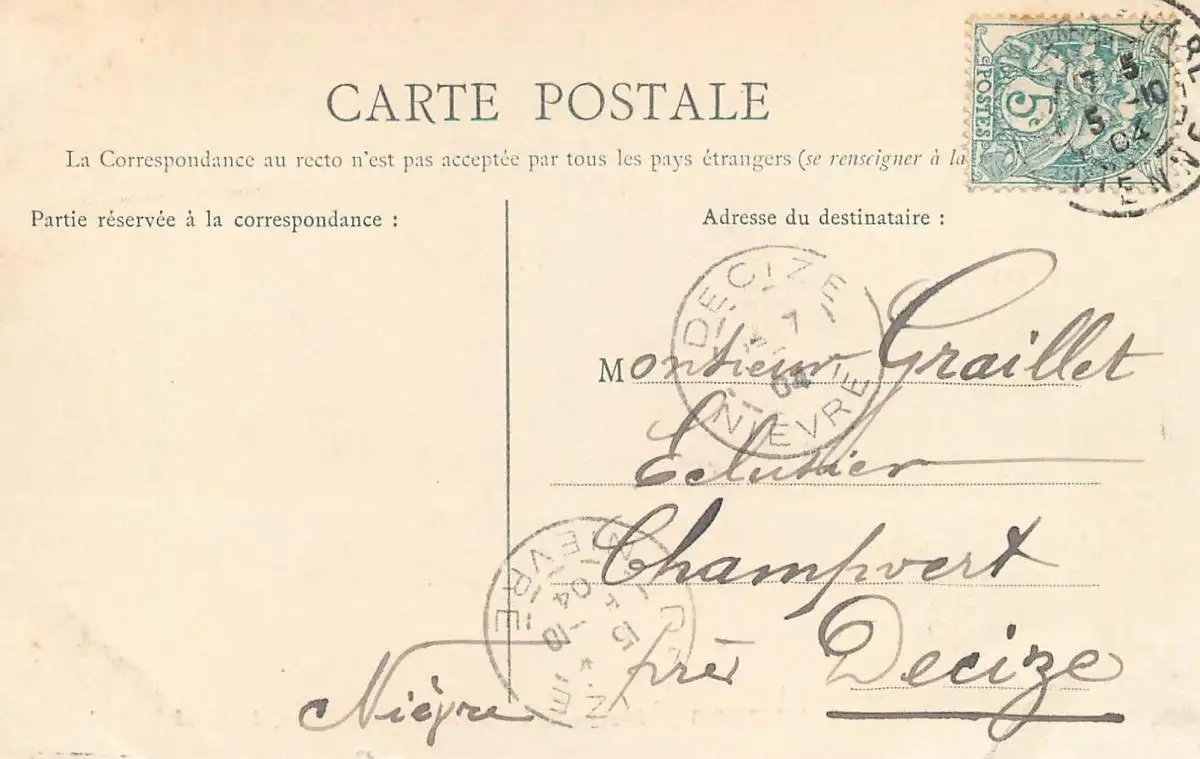 CARTE POSTALE
La Correspondance au recto n'est pas acceptée par tous les pays étrangers (se renseigner à la
Partie réservée à la correspondance :
Adresse du destinataire :
POSTES
5c
GARE
5 -10
04
DECIZE
7
04
NIEVRE
Monsieur Graillet
Eclusier
Champvert
près Decize
Nièvre
NIEVRE
04